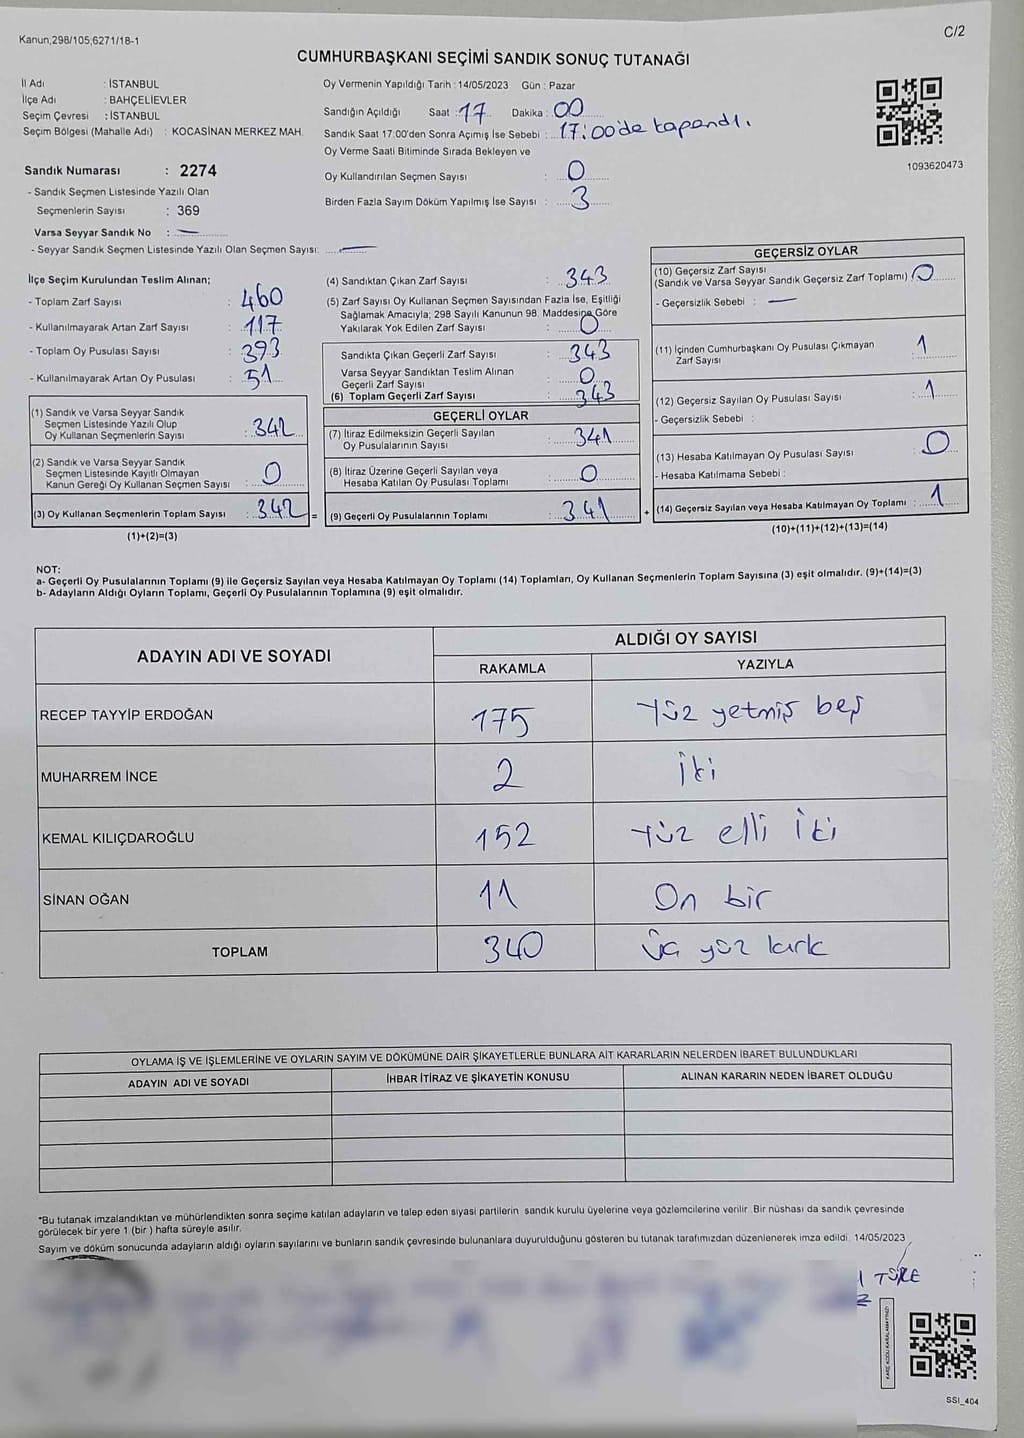 Kanun,298/105,6271/18-1
C/2
CUMHURBAŞKANI SEÇİMİ SANDIK SONUÇ TUTANAĞI
İl Adı : İSTANBUL
İlçe Adı : BAHÇELİEVLER
Seçim Çevresi : İSTANBUL
Seçim Bölgesi (Mahalle Adı) : KOCASİNAN MERKEZ MAH.
Oy Vermenin Yapıldığı Tarih : 14/05/2023 Gün : Pazar
Sandığın Açıldığı Saat : 17 Dakika : 00
Sandık Saat 17:00'den Sonra Açımış İse Sebebi : 17:00'de kapandı.
Oy Verme Saati Bitiminde Sırada Bekleyen ve
Oy Kullandırılan Seçmen Sayısı : 0
Birden Fazla Sayım Döküm Yapılmış İse Sayısı : 3
1093620473
Sandık Numarası : 2274
- Sandık Seçmen Listesinde Yazılı Olan
Seçmenlerin Sayısı : 369
Varsa Seyyar Sandık No : —
- Seyyar Sandık Seçmen Listesinde Yazılı Olan Seçmen Sayısı: —
İlçe Seçim Kurulundan Teslim Alınan;
- Toplam Zarf Sayısı : 460
- Kullanılmayarak Artan Zarf Sayısı : 117
- Toplam Oy Pusulası Sayısı : 393
- Kullanılmayarak Artan Oy Pusulası : 51
(1) Sandık ve Varsa Seyyar Sandık
Seçmen Listesinde Yazılı Olup
Oy Kullanan Seçmenlerin Sayısı : 342
(2) Sandık ve Varsa Seyyar Sandık
Seçmen Listesinde Kayıtlı Olmayan
Kanun Gereği Oy Kullanan Seçmen Sayısı : 0
(3) Oy Kullanan Seçmenlerin Toplam Sayısı : 342 =
(1)+(2)=(3)
(4) Sandıktan Çıkan Zarf Sayısı : 343
(5) Zarf Sayısı Oy Kullanan Seçmen Sayısından Fazla İse, Eşitliği
Sağlamak Amacıyla; 298 Sayılı Kanunun 98. Maddesine Göre
Yakılarak Yok Edilen Zarf Sayısı : 0
Sandıkta Çıkan Geçerli Zarf Sayısı : 343
Varsa Seyyar Sandıktan Teslim Alınan
Geçerli Zarf Sayısı : 0
(6) Toplam Geçerli Zarf Sayısı : 343
GEÇERLİ OYLAR
(7) İtiraz Edilmeksizin Geçerli Sayılan
Oy Pusulalarının Sayısı : 341
(8) İtiraz Üzerine Geçerli Sayılan veya
Hesaba Katılan Oy Pusulası Toplamı : 0
(9) Geçerli Oy Pusulalarının Toplamı : 341 +
GEÇERSİZ OYLAR
(10) Geçersiz Zarf Sayısı
(Sandık ve Varsa Seyyar Sandık Geçersiz Zarf Toplamı) 0
- Geçersizlik Sebebi : —
(11) İçinden Cumhurbaşkanı Oy Pusulası Çıkmayan
Zarf Sayısı : 1
(12) Geçersiz Sayılan Oy Pusulası Sayısı : 1
- Geçersizlik Sebebi :
(13) Hesaba Katılmayan Oy Pusulası Sayısı : 0
- Hesaba Katılmama Sebebi :
(14) Geçersiz Sayılan veya Hesaba Katılmayan Oy Toplamı : 1
(10)+(11)+(12)+(13)=(14)
NOT:
a- Geçerli Oy Pusulalarının Toplamı (9) ile Geçersiz Sayılan veya Hesaba Katılmayan Oy Toplamı (14) Toplamları, Oy Kullanan Seçmenlerin Toplam Sayısına (3) eşit olmalıdır. (9)+(14)=(3)
b- Adayların Aldığı Oyların Toplamı, Geçerli Oy Pusulalarının Toplamına (9) eşit olmalıdır.
ADAYIN ADI VE SOYADI
ALDIĞI OY SAYISI
RAKAMLA YAZIYLA
RECEP TAYYİP ERDOĞAN 175 Yüz yetmiş beş
MUHARREM İNCE 2 İki
KEMAL KILIÇDAROĞLU 152 Yüz elli iki
SİNAN OĞAN 11 On bir
TOPLAM 340 Üç yüz kırk
OYLAMA İŞ VE İŞLEMLERİNE VE OYLARIN SAYIM VE DÖKÜMÜNE DAİR ŞİKAYETLERLE BUNLARA AİT KARARLARIN NELERDEN İBARET BULUNDUKLARI
ADAYIN ADI VE SOYADI İHBAR İTİRAZ VE ŞİKAYETİN KONUSU ALINAN KARARIN NEDEN İBARET OLDUĞU
*Bu tutanak imzalandıktan ve mühürlendikten sonra seçime katılan adayların ve talep eden siyasi partilerin sandık kurulu üyelerine veya gözlemcilerine verilir. Bir nüshası da sandık çevresinde
görülecek bir yere 1 (bir ) hafta süreyle asılır.
Sayım ve döküm sonucunda adayların aldığı oyların sayılarını ve bunların sandık çevresinde bulunanlara duyurulduğunu gösteren bu tutanak tarafımızdan düzenlenerek imza edildi. 14/05/2023
SSI_404